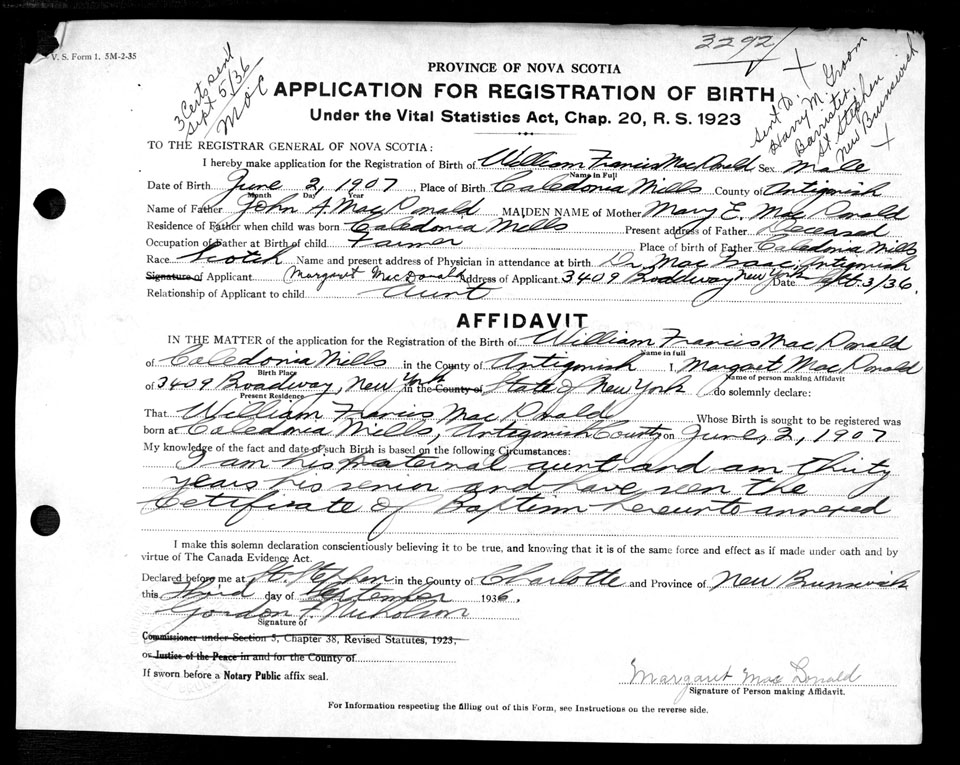 V. S. Form 1. 5M-2-35
3292
3 Certs sent
Sept 5/36
M.O.C
Sent to:
Harry M. Groom
Barrister,
St Stephen
New Brunswick
PROVINCE OF NOVA SCOTIA
APPLICATION FOR REGISTRATION OF BIRTH
Under the Vital Statistics Act, Chap. 20, R. S. 1923
TO THE REGISTRAR GENERAL OF NOVA SCOTIA:
I hereby make application for the Registration of Birth of William Francis MacDonald Sex Male
Name in Full
Date of Birth June 2, 1907 Place of Birth Caledonia Mills County of Antigonish
Month Day Year
Name of Father John A. MacDonald MAIDEN NAME of Mother Mary E. MacDonald
Residence of Father when child was born Caledonia Mills Present address of Father Deceased
Occupation of Father at Birth of child Farmer Place of birth of Father Caledonia Mills
Race Scotch Name and present address of Physician in attendance at birth Dr. MacIsaac, Antigonish
Signature of Applicant Margaret MacDonald Address of Applicant 3409 Broadway New York Date Sept. 3/36.
Relationship of Applicant to child Aunt
AFFIDAVIT
IN THE MATTER of the application for the Registration of the Birth of William Francis MacDonald
Name in full
of Caledonia Mills in the County of Antigonish I, Margaret MacDonald
Birth Place Name of person making Affidavit
of 3409 Broadway, New York in the County of State of New York do solemnly declare:
Present Residence
That William Francis MacDonald Whose Birth is sought to be registered was
born at Caledonia Mills, Antigonish County on June, 2, 1907
My knowledge of the fact and date of such Birth is based on the following Circumstances:
I am his paternal aunt and am thirty
years his senior and have seen the
Certificate of Baptism hereunto annexed
I make this solemn declaration conscientiously believing it to be true, and knowing that it is of the same force and effect as if made under oath and by
virtue of The Canada Evidence Act.
Declared before me at St. Stephen in the County of Charlotte and Province of New Brunswick
this Third day of September 1936.
Gordon F. Nicholson
Signature of
Commissioner under Section 5, Chapter 38, Revised Statutes, 1923,
or Justice of the Peace in and for the County of
If sworn before a Notary Public affix seal.
Margaret MacDonald
Signature of Person making Affidavit.
For Information respecting the filling out of this Form, see Instructions on the reverse side.